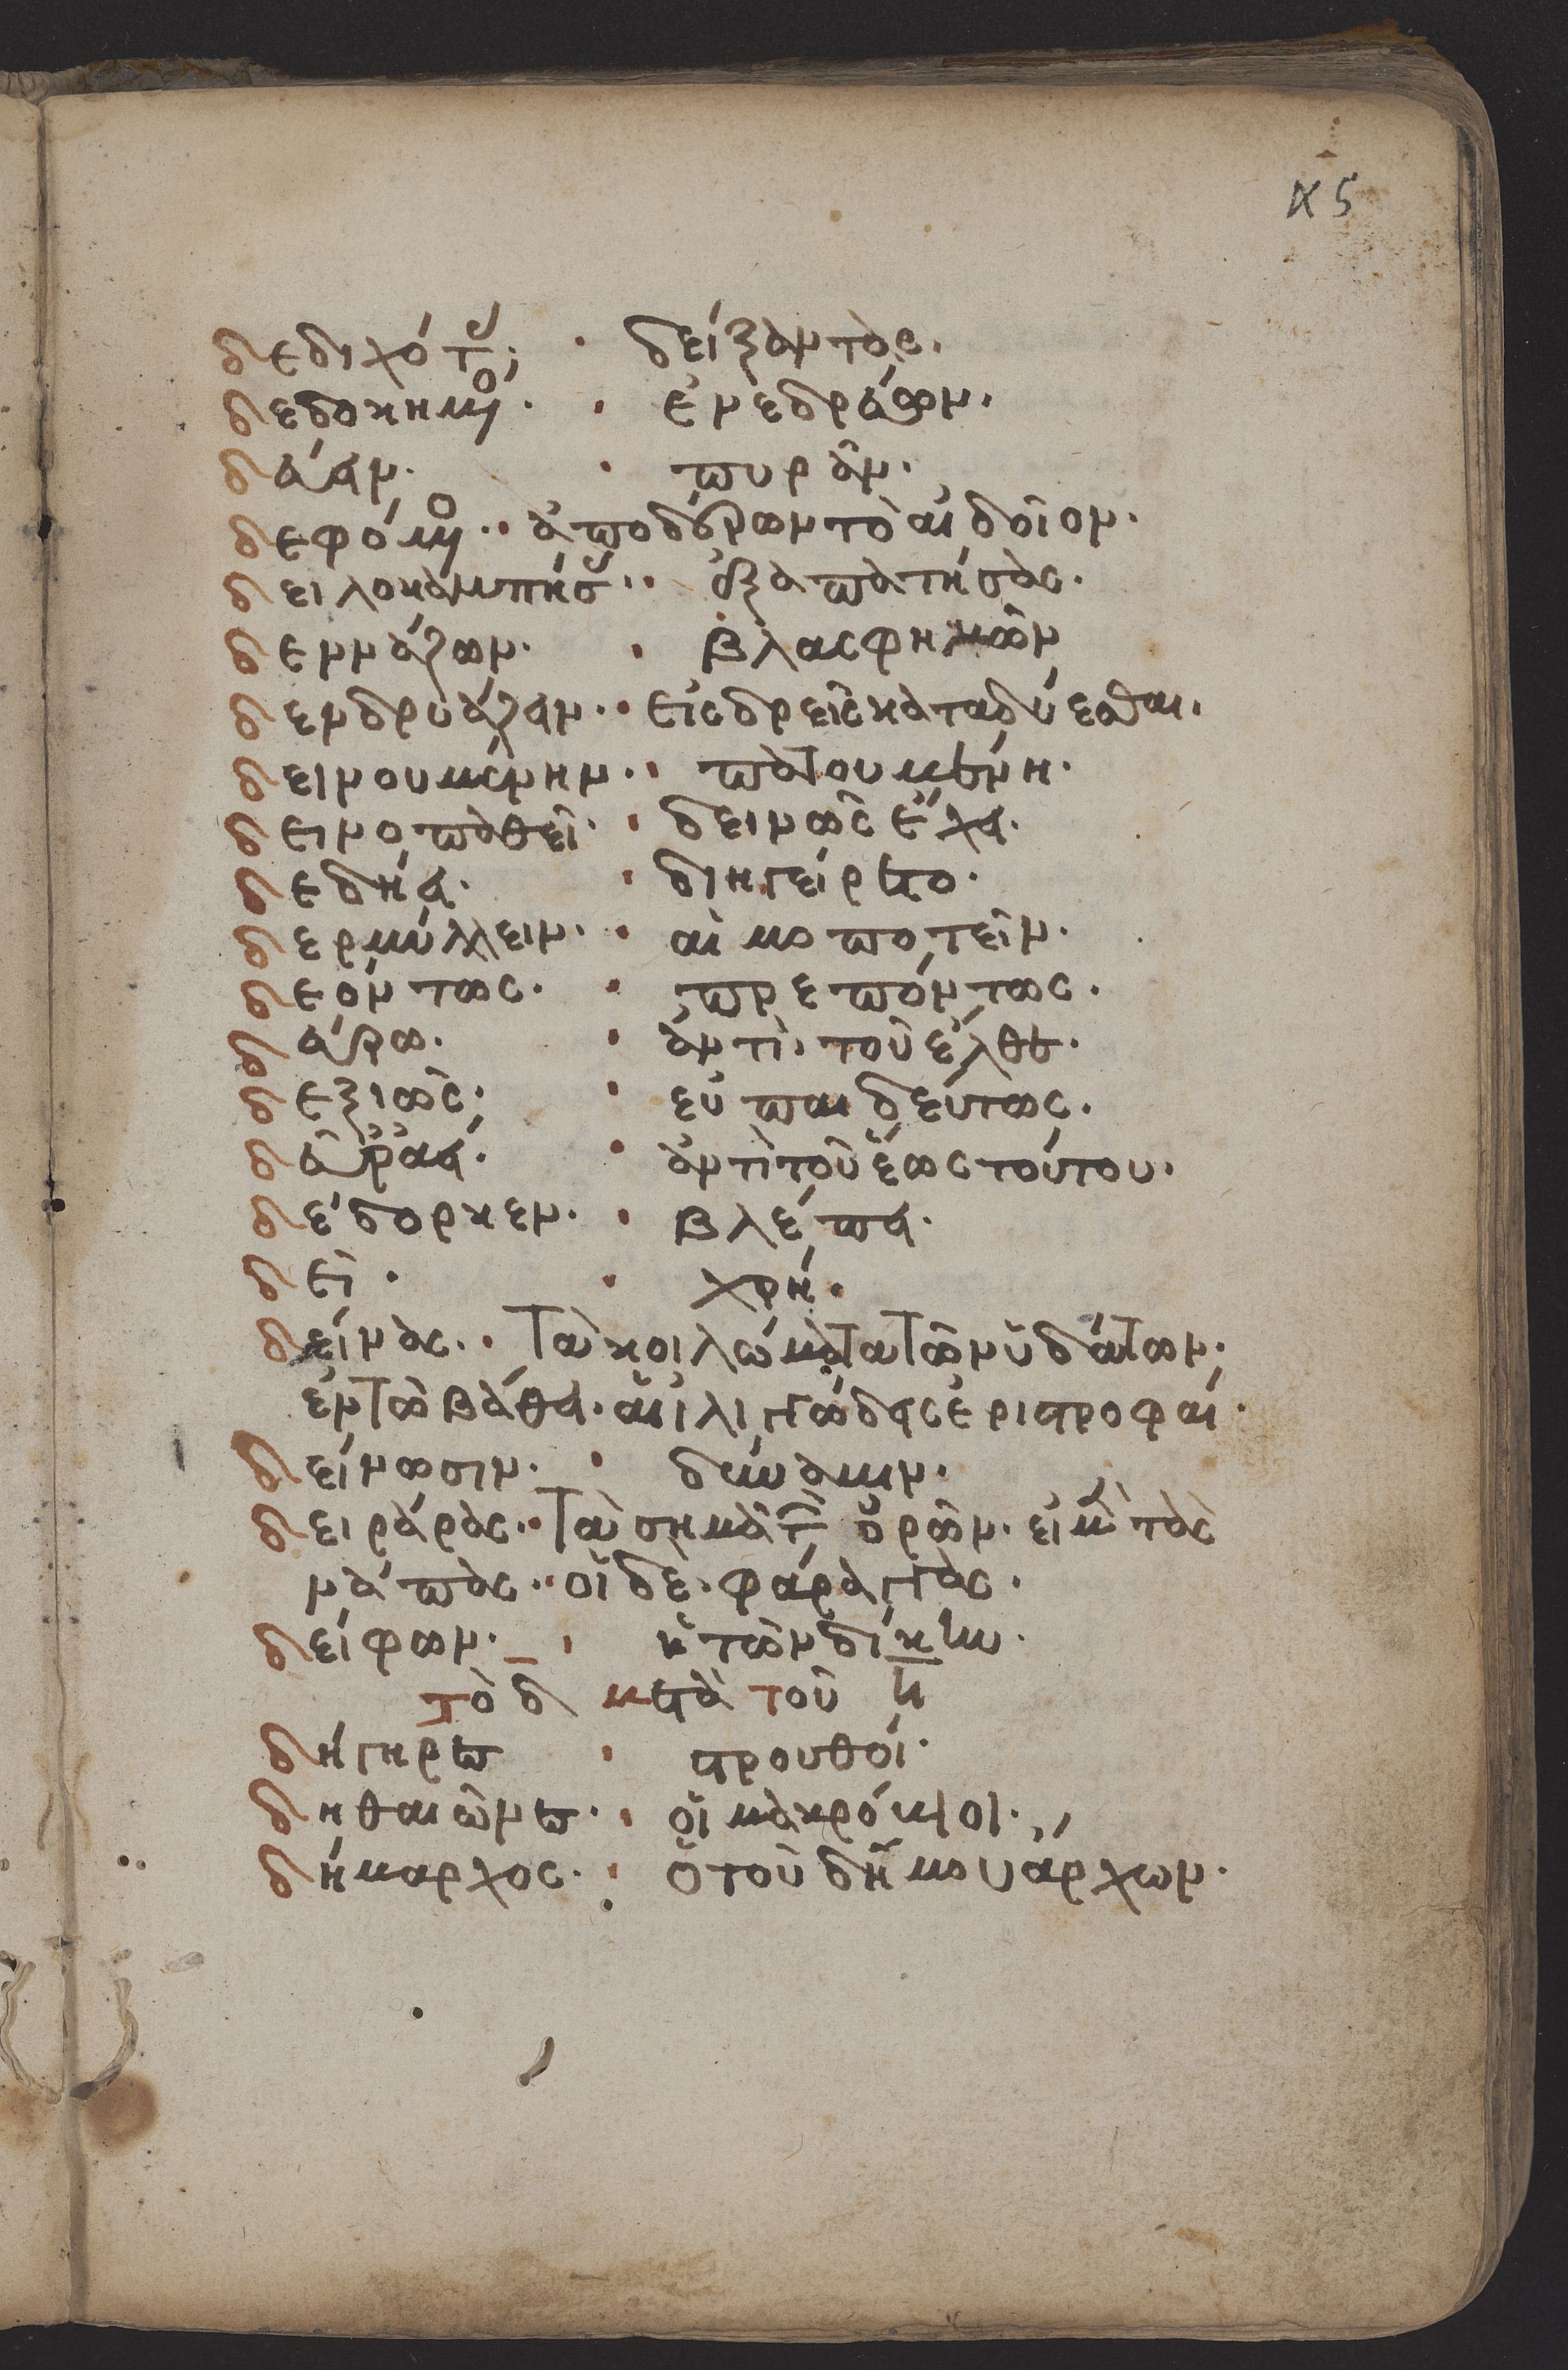 κϛ
δεδιχότος· δείξαντος.
δεδοκημένος· ἐνεδρεύων.
δάειν· πυρᾶν.
δεφόμενος· ἀποδέρων τὸ αἰδοῖον.
δειλοκαμπήσας· ἐξαπατήσας.
δεννάζων· βλασφημῶν
δενδρυάζειν· εἰς δρεῖς καταδύεσθαι.
δεινουμένην· πατουμένη.
δεινοπαθεῖ· δεινῶς ἔχει.
δεδήει· διηγείρετο.
δερμύλλειν· αἱμοποτεῖν.
δεόντως· πρεπόντως.
δεῦρο· ἀντὶ τοῦ ἐλθέ.
δεξιῶς· εὐπαιδεύτως.
δεῦρο ἀεί· ἀντὶ τοῦ ἕως τούτου.
δέδορκεν· βλέπει.
δεῖ· χρή.
δείνας· τὰ κοιλώματα τῶν ὑδάτων.
ἐν τῷ βάθει· εἰλιπόδεις ἐριτροφαί·
δείνωσιν· δύναμιν.
δειράδας· τὰ σημάτια ὀρῶν· οἱ μὲν τὰς
νάπας· οἱ δὲ φάραγγας.
δείφων· ἢ τῶν δίκην.
τὸ δ μετὰ τοῦ η
δήγηρες στρουθοί.
δηθαιῶνες· οἱ μακρόβιοι.
δήμαρχος· ὁ τοῦ δήμου ἄρχων.